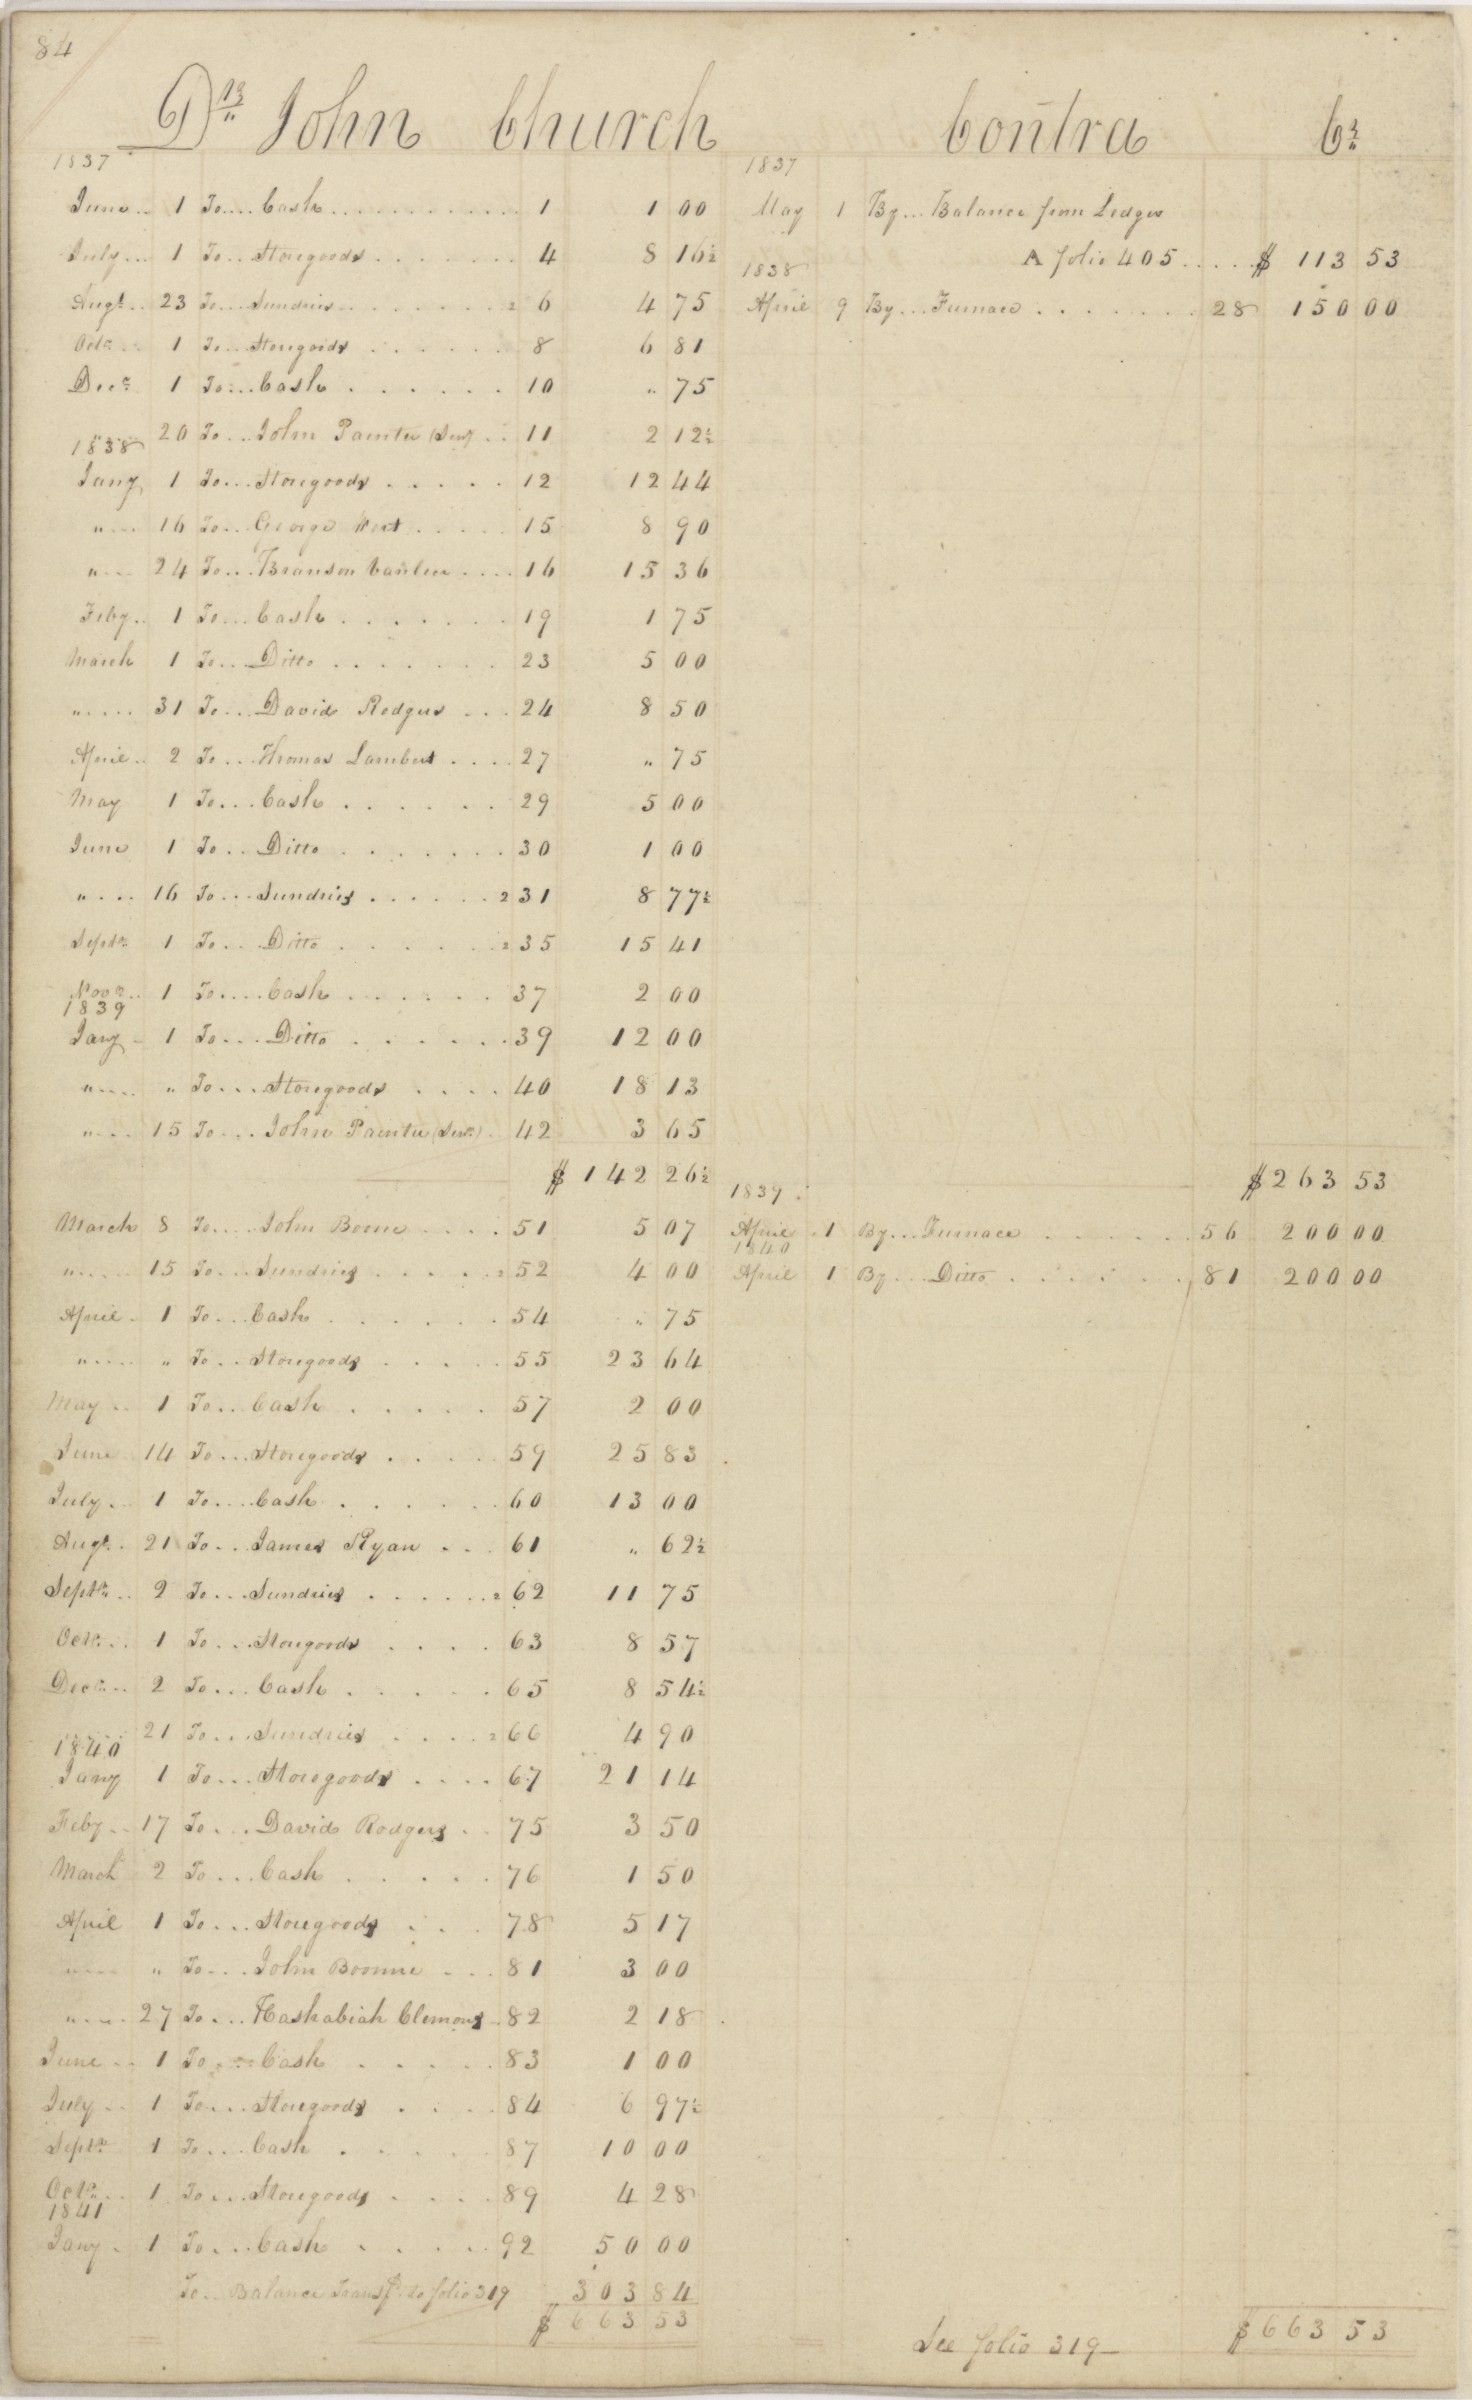 84
Dr. John Church Contra Cr.
1837 1837
June 1 To Cash 1 1 00 May 1 By Balance from Ledger
July 1 To Storegoods 4 8 16½ A folio 405 $ 113 53
1838
Augt. 23 To Sundries 6 4 75 April 9 By Furnace 28 150 00
Octr. 1 To Storegoods 8 6 81
Decr. 1 To Cash 10 " 75
20 To John Painter (Senr) 11 2 12½
1838
Jany 1 To Storegoods 12 12 44
" 16 To George West 15 8 90
" 24 To Branson 16 15 36
Feby 1 To Cash 19 1 75
March 1 To Ditto 23 5 00
" 31 To David Rodgers 24 8 50
April 2 To Thomas Lambert 27 " 75
May 1 To Cash 29 5 00
June 1 To Ditto 30 1 00
" 16 To Sundries 2 31 8 77½
Septr. 1 To Ditto 2 35 15 41
Novr. 1 To Cash 37 2 00
1839
Jany 1 To Ditto 39 12 00
" " To Storegoods 40 18 13
" 15 To John Painter (Senr.) 42 3 65
$ 142 26½ $ 263 53
1839
March 8 To John Boone 51 5 07 April 1 By Furnace 56 200 00
1840
" 15 To Sundries 2 52 4 00 April 1 By Ditto 81 200 00
April 1 To Cash 54 " 75
" " To Storegoods 55 23 64
May 1 To Cash 57 2 00
June 14 To Storegoods 59 25 83
July 1 To Cash 60 13 00
Augt. 21 To James Ryan 61 " 62½
Septr. 2 To Sundries 2 62 11 75
Octr. 1 To Storegoods 63 8 57
Decr. 2 To Cash 65 8 54½
21 To Sundries 2 66 4 90
1840
Jany 1 To Storegoods 67 21 14
Feby 17 To David Rodgers 75 3 50
March 2 To Cash 76 1 50
April 1 To Storegoods 78 5 17
" " To John Boonne 81 3 00
" 27 To Hashabiah Clemons 82 2 18
June 1 To Cash 83 1 00
July 1 To Storegoods 84 6 97½
Septr. 1 To Cash 87 10 00
Octr. 1 To Storegoods 89 4 28
1841
Jany 1 To Cash 92 50 00
To Balance Transfd. to folio 319 303 84
$ 663 53 See folio 319 $ 663 53